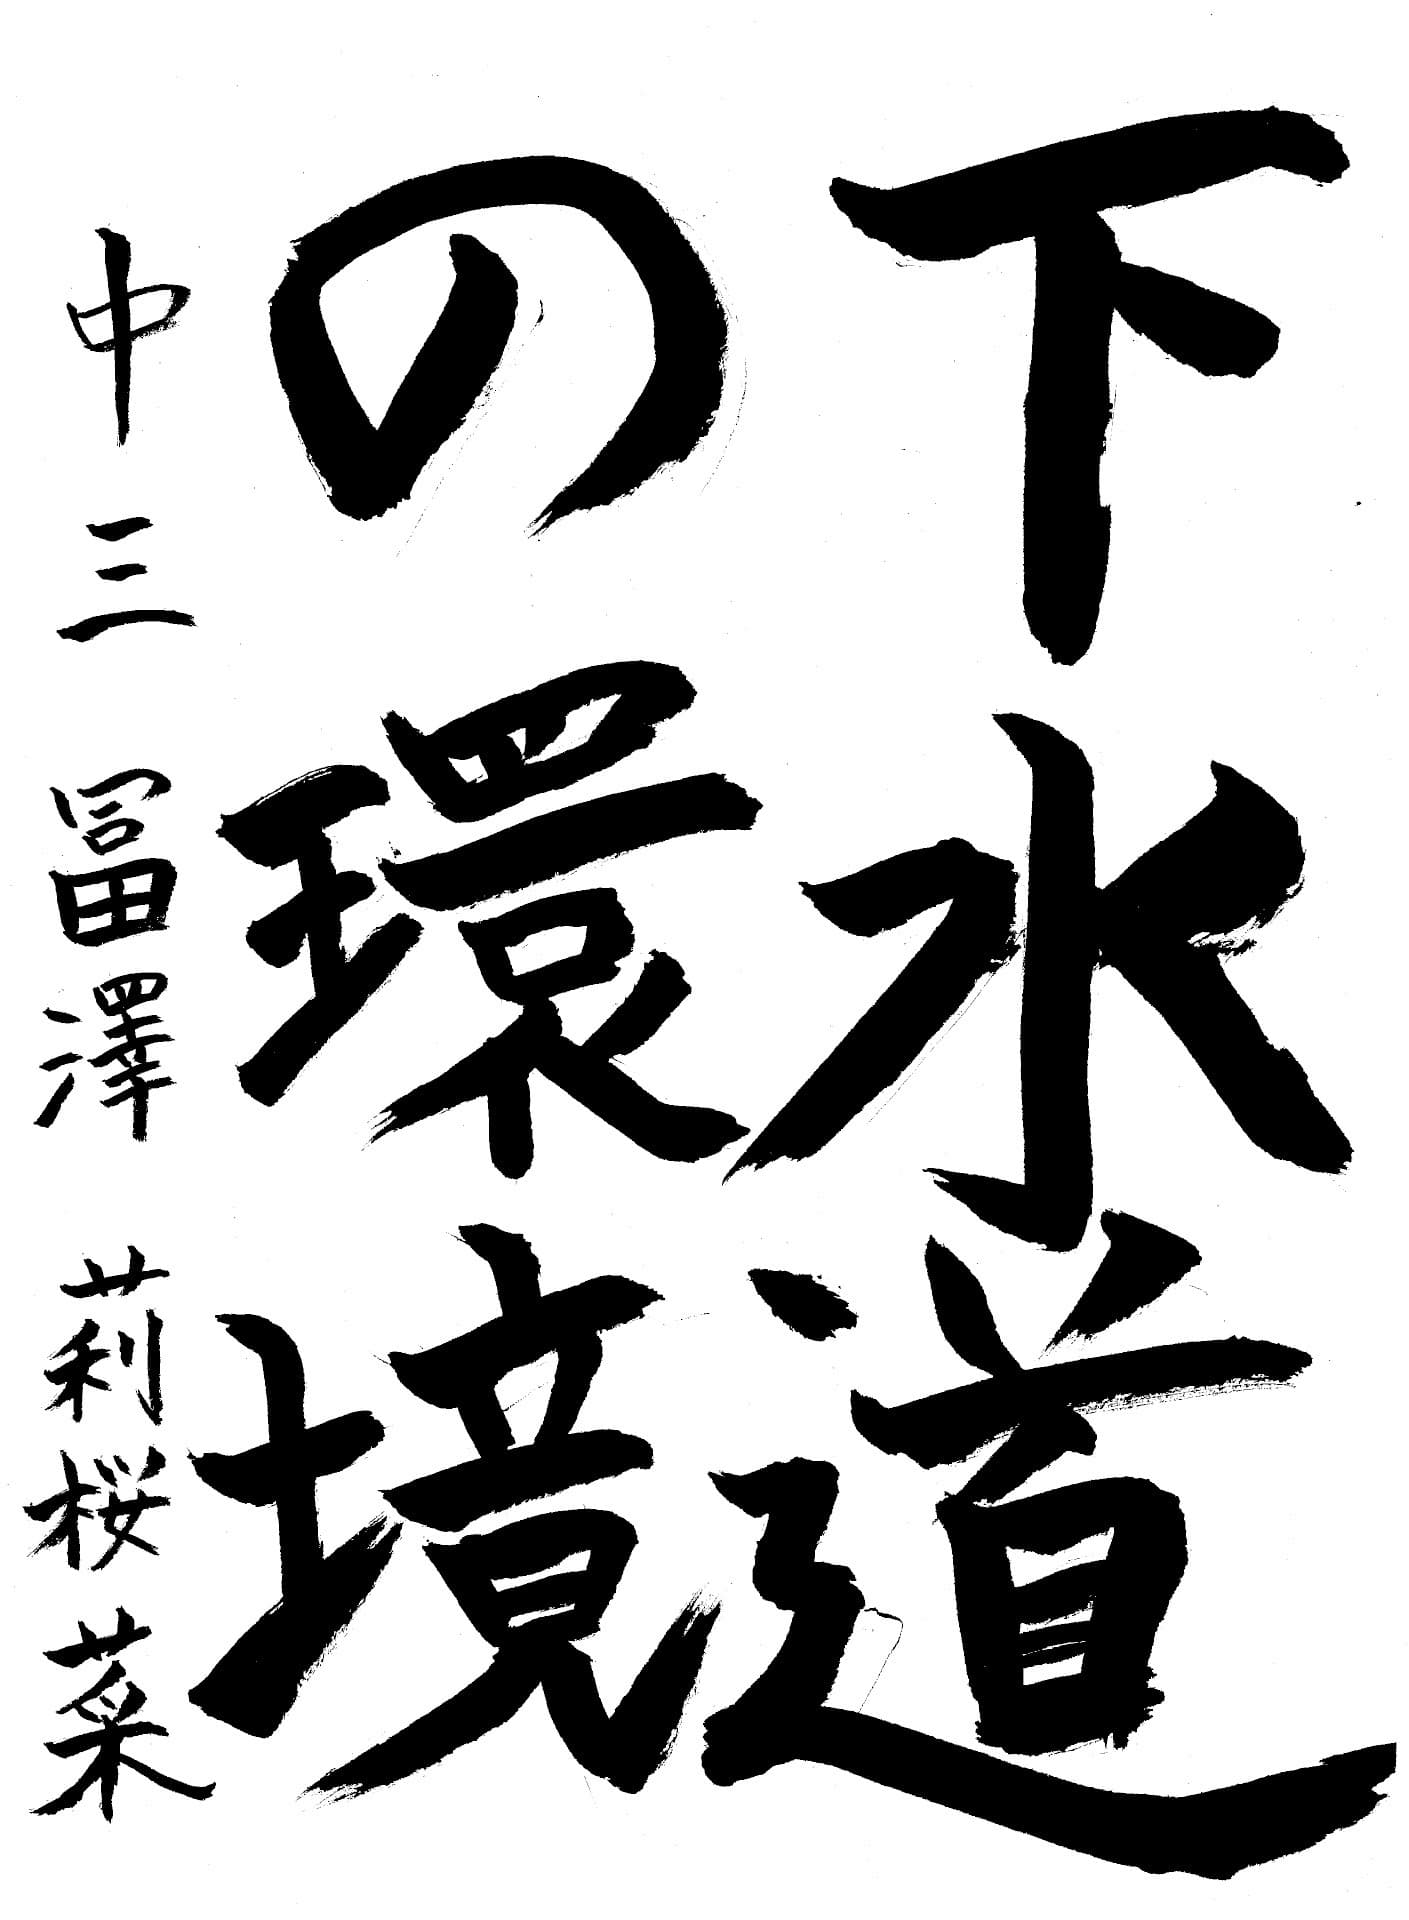 下水道
の環境
中三 冨澤 莉桜菜